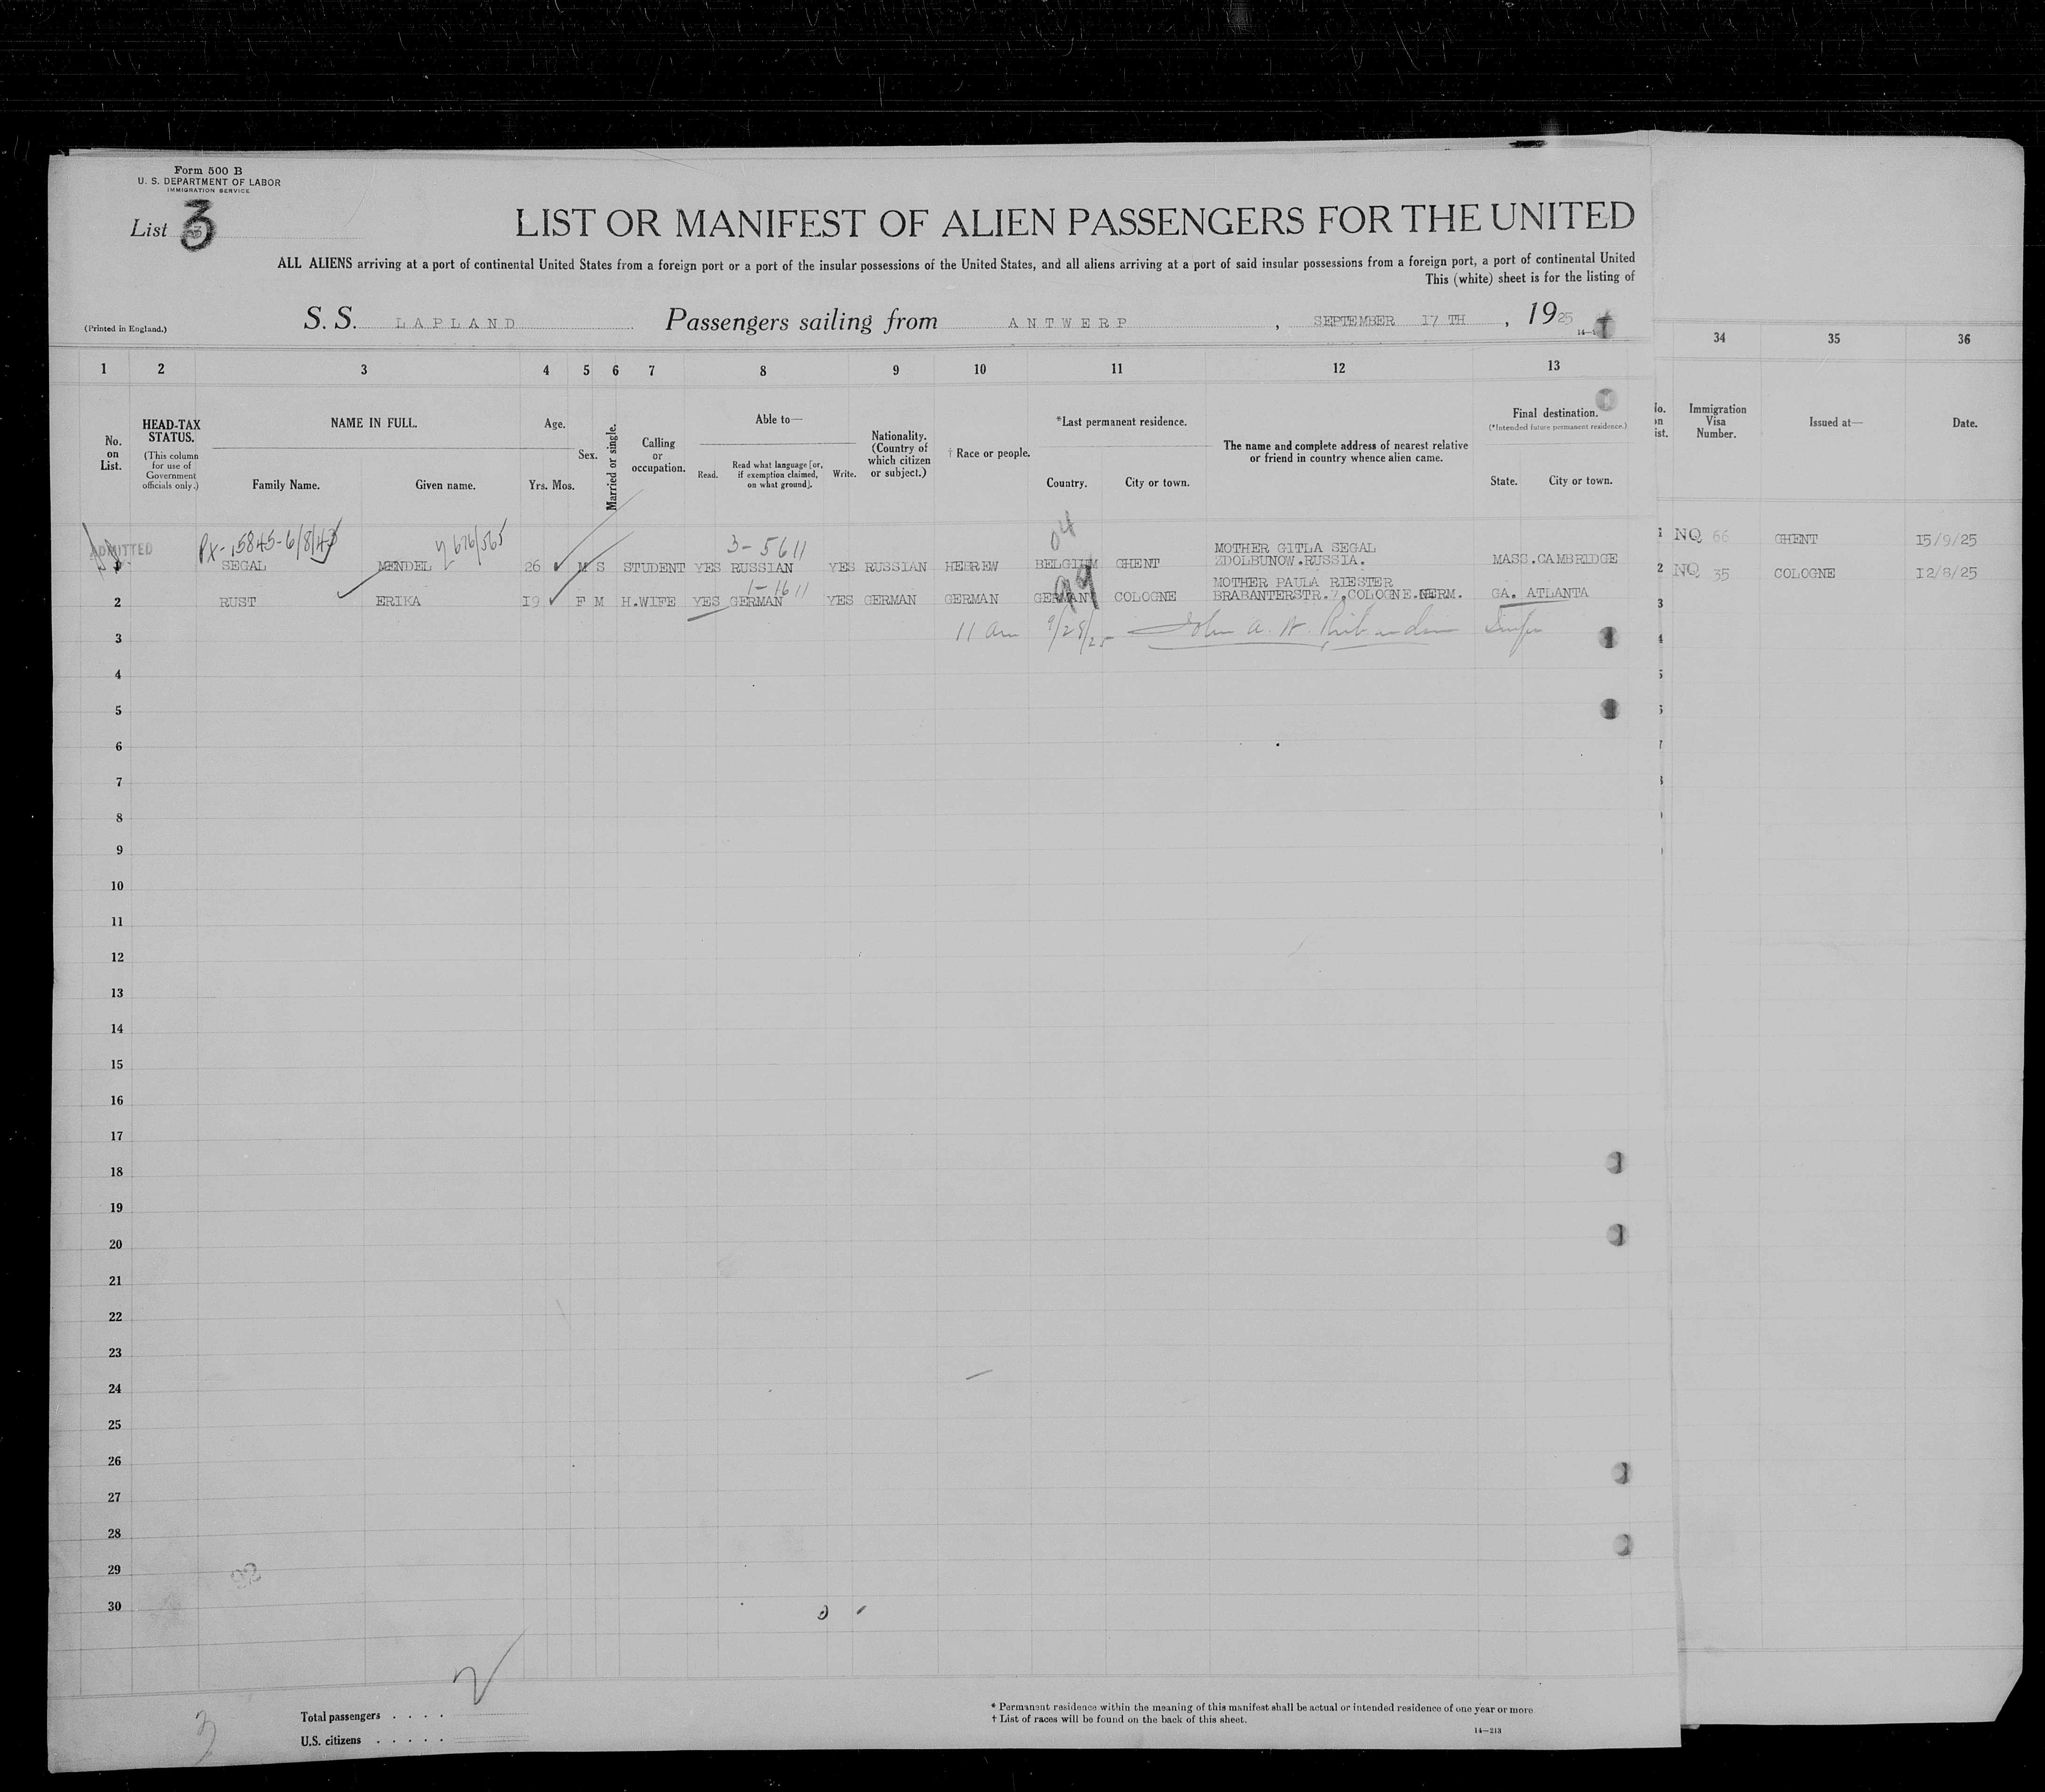 Form 500 B
U. S. DEPARTMENT OF LABOR
IMMIGRATION SERVICE
List 3
LIST OR MANIFEST OF ALIEN PASSENGERS FOR THE UNITED
ALL ALIENS arriving at a port of continental United States from a foreign port or a port of the insular possessions of the United States, and all aliens arriving at a port of said insular possessions from a foreign port, a port of continental United
This (white) sheet is for the listing of
(Printed in England.)
S. S. LAPLAND Passengers sailing from ANTWERP, SEPTEMBER 17 TH, 1925
1 2 3 4 5 6 7 8 9 10 11 12 13 34 35 36
No. on List.
HEAD-TAX STATUS.
(This column for use of Government officials only.)
NAME IN FULL.
Family Name. Given name.
Age.
Yrs. Mos.
Sex.
Married or single.
Calling or occupation.
Able to—
Read. Read what language [or, if exemption claimed, on what ground]. Write.
Nationality. (Country of which citizen or subject.)
† Race or people.
*Last permanent residence.
Country. City or town.
The name and complete address of nearest relative or friend in country whence alien came.
Final destination.
(*Intended future permanent residence.)
State. City or town.
Immigration Visa Number.
Issued at—
Date.
ADMITTED
PX-15845-6/8/43 3-5611 04
MOTHER GITLA SEGAL
SEGAL MENDEL 26 M S STUDENT YES RUSSIAN YES RUSSIAN HEBREW BELGIUM GHENT ZDOLBUNOW.RUSSIA. MASS.CAMBRIDGE NQ 66 GHENT 15/9/25
1-1611 99
MOTHER PAULA RIESTER
2 RUST ERIKA 19 F M H.WIFE YES GERMAN YES GERMAN GERMAN GERMANY COLOGNE BRABANTERSTR.7,COLOGNE.GERM. GA. ATLANTA 2 NQ 35 COLOGNE 12/8/25
3 11 am 9/28/25 John A. W.
4
5
6
7
8
9
10
11
12
13
14
15
16
17
18
19
20
21
22
23
24
25
26
27
28
29
30
92
2
3
Total passengers . . . .
U.S. citizens . . . . .
* Permanent residence within the meaning of this manifest shall be actual or intended residence of one year or more.
† List of races will be found on the back of this sheet.
14—213